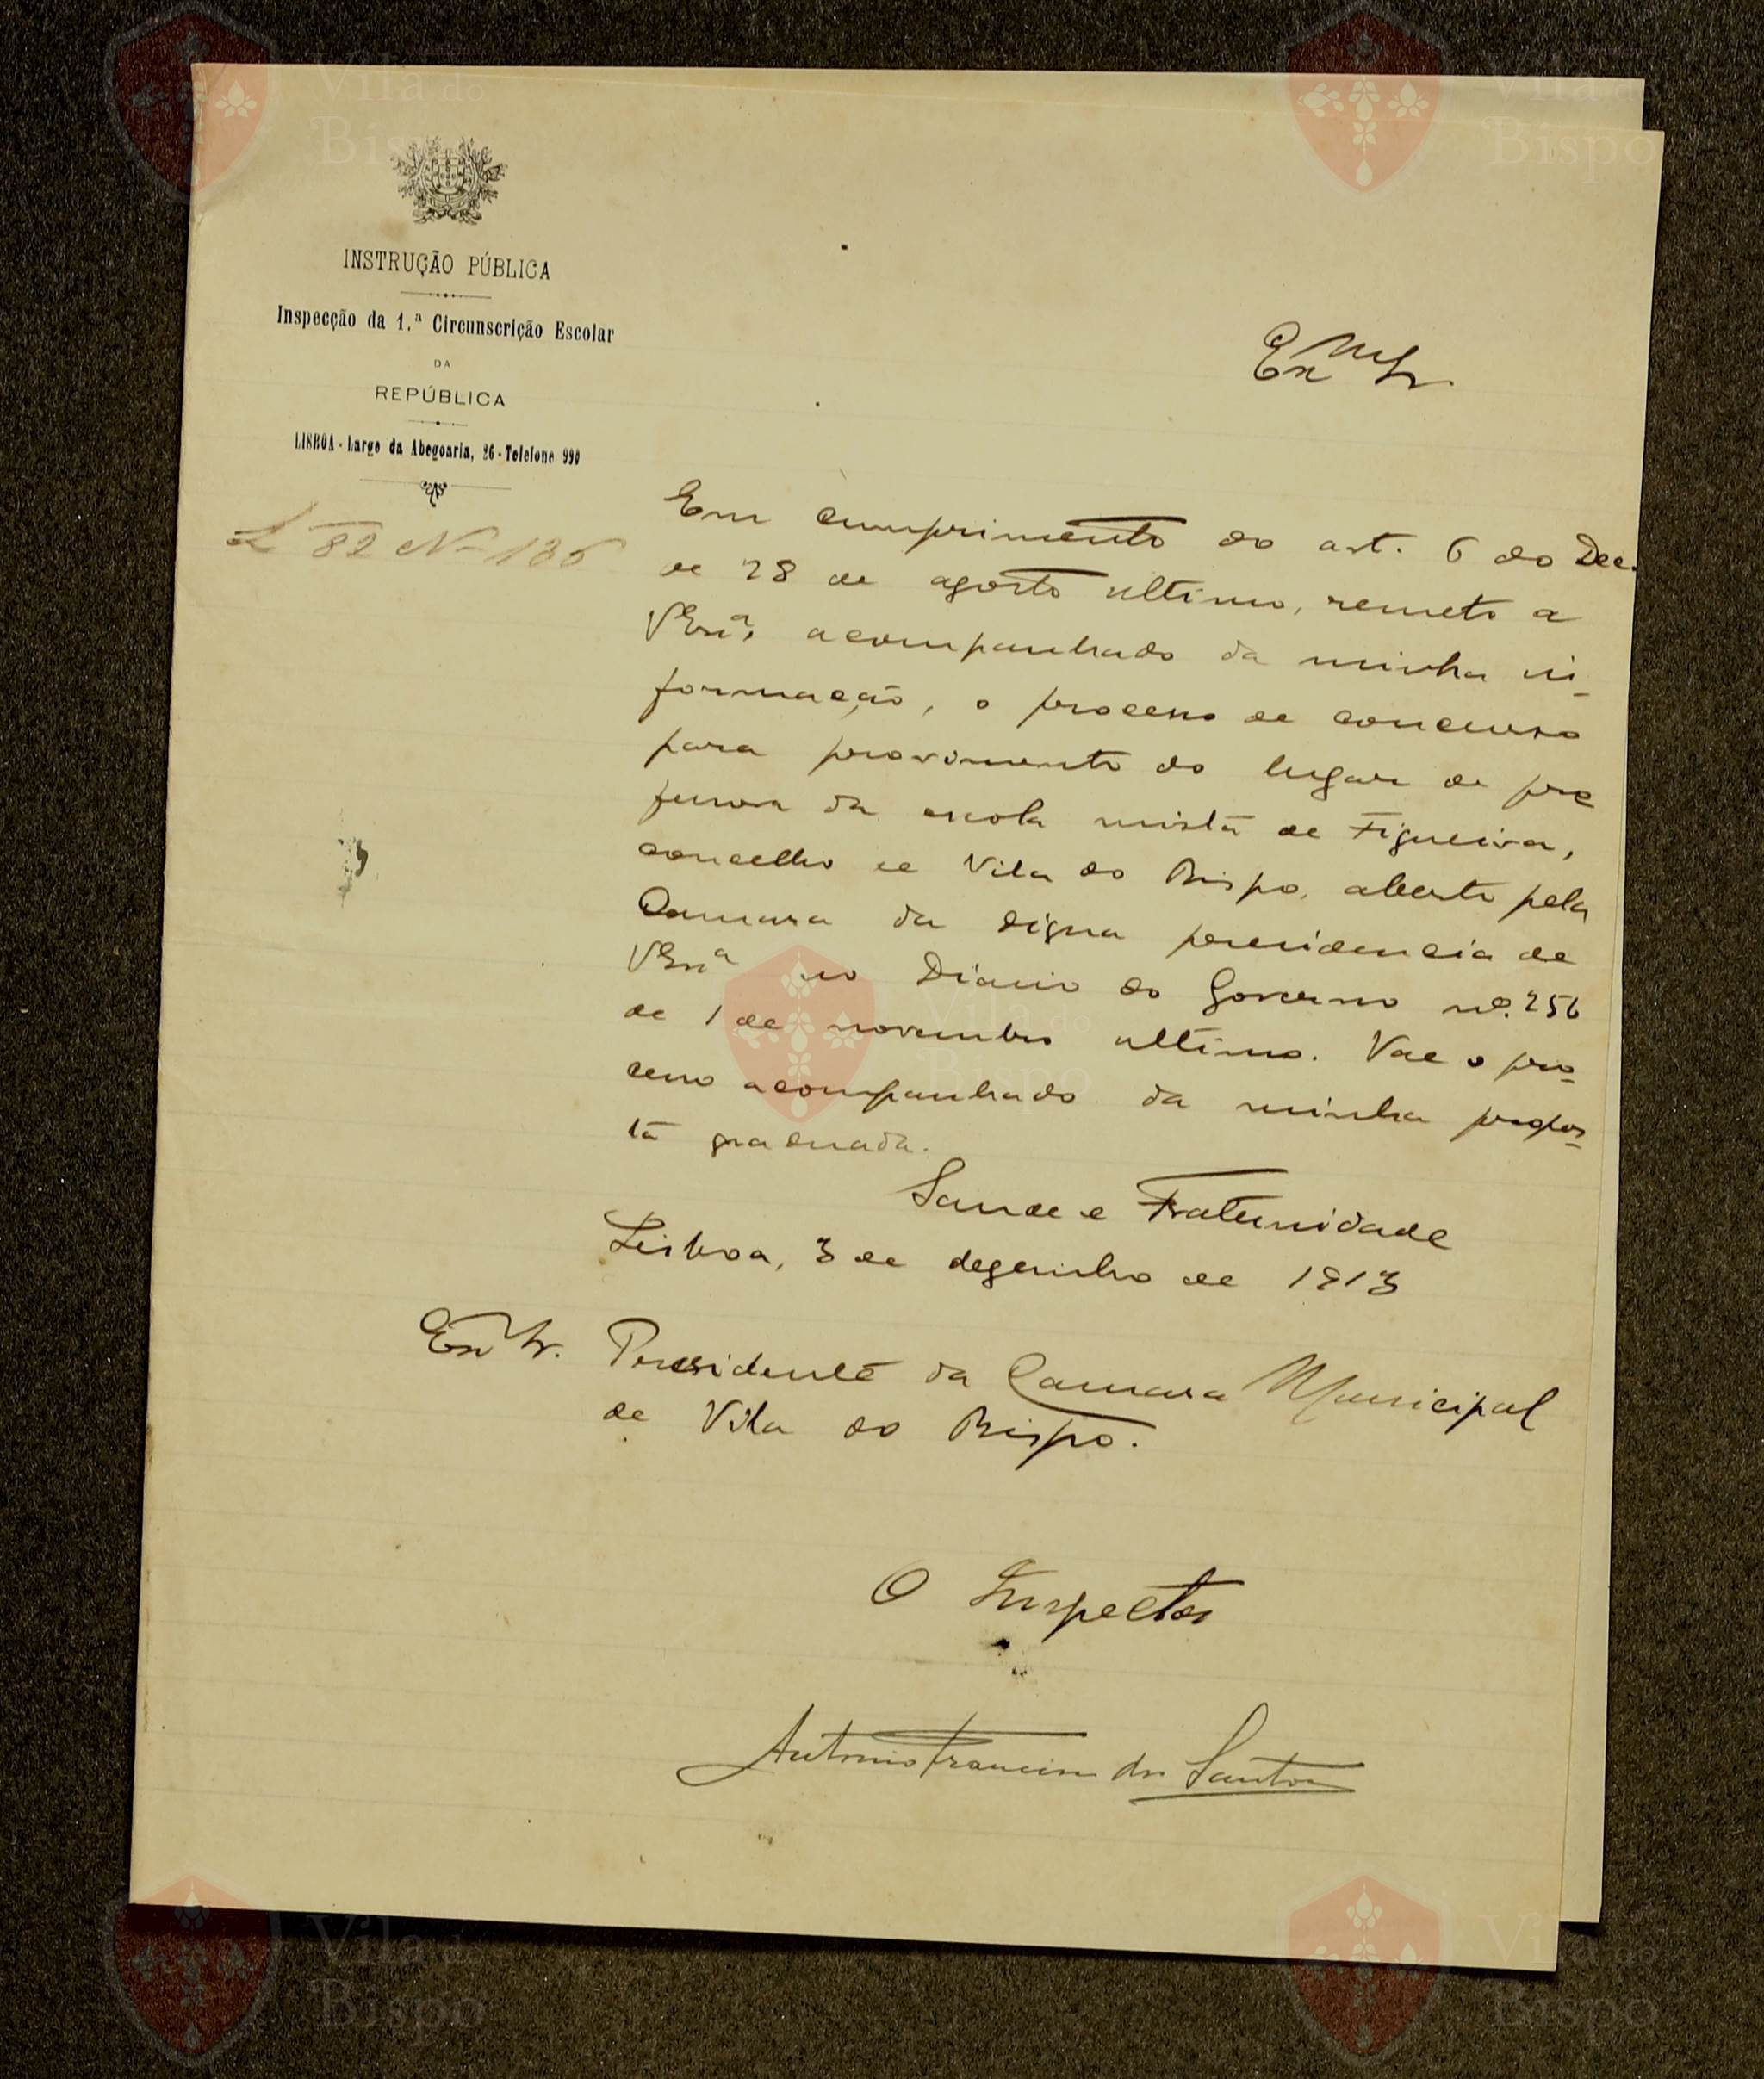 INSTRUÇÃO PÚBLICA
Inspecção da 1.ª Circunscrição Escolar
DA
REPÚBLICA
LISBOA - Largo da Abegoaria, 26 - Telefone 990
L 82 Nº 136
Exmo Sr
Em cumprimento do art. 6 do Dec.
de 28 de agosto ultimo, remeto a
V Exª, acompanhado da minha in-
formação, o processo de concurso
para provimento do lugar de pro
fessora da escola mista de Figueira,
concelho de Vila do Bispo, aberto pela
Camara da digna presidencia de
V Exª no Diario do Governo nº. 256
de 1 de novembro ultimo. Vae o pro-
cesso acompanhado da minha propos-
ta graduada.
Saude e Fraternidade
Lisboa, 3 de dezembro de 1913
Ex Sr. Presidente da Camara Municipal
de Vila do Bispo.
O Inspector
Antonio Francisco dos Santos
Vila do
Bispo
Vila do
Bispo
Vila do
Bispo
Vila do
Bispo
Vila do
Bispo